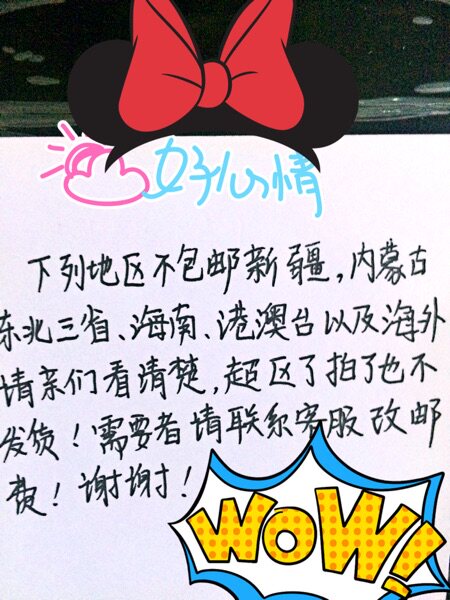 好心情
下列地区不包邮新疆,内蒙古
东北三省、海南、港澳台以及海外
请亲们看清楚,超区了拍了也不
发货!需要者请联系客服改邮
费!谢谢!
WOW!